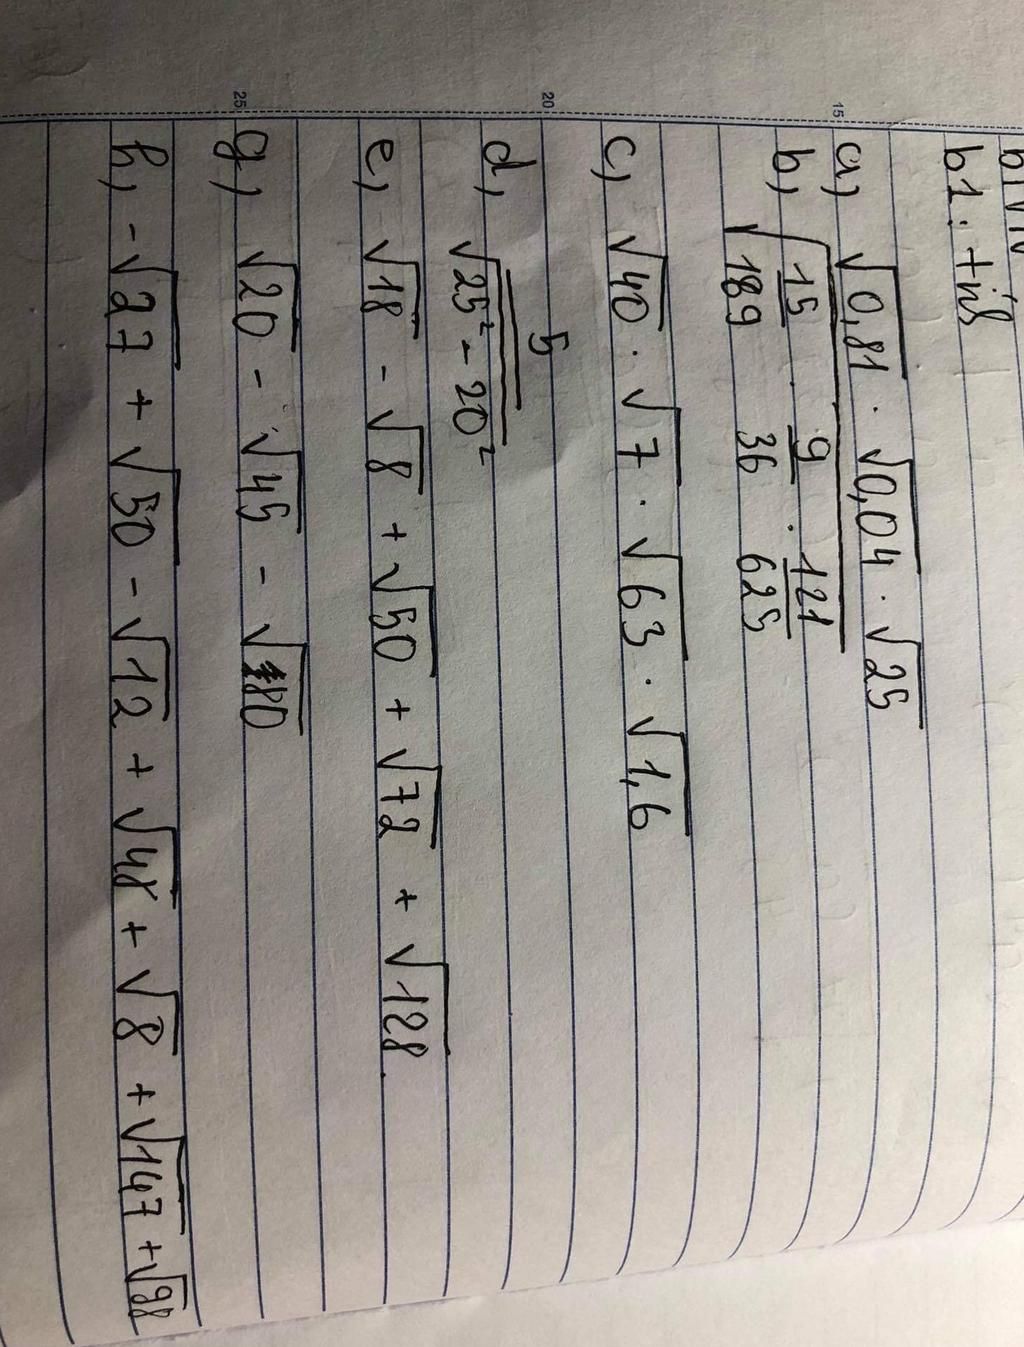 b1: tính
a) √0,81 . √0,04 . √25
b) √(15/189 . 9/36 . 121/625)
c) √40 . √7 . √63 . √1,6
5
d) √25² - 20²
e) √18 - √8 + √50 + √72 + √128.
g) √20 - √45 - √180
h) -√27 + √50 - √12 + √48 + √8 + √147 + √98
15
20
25